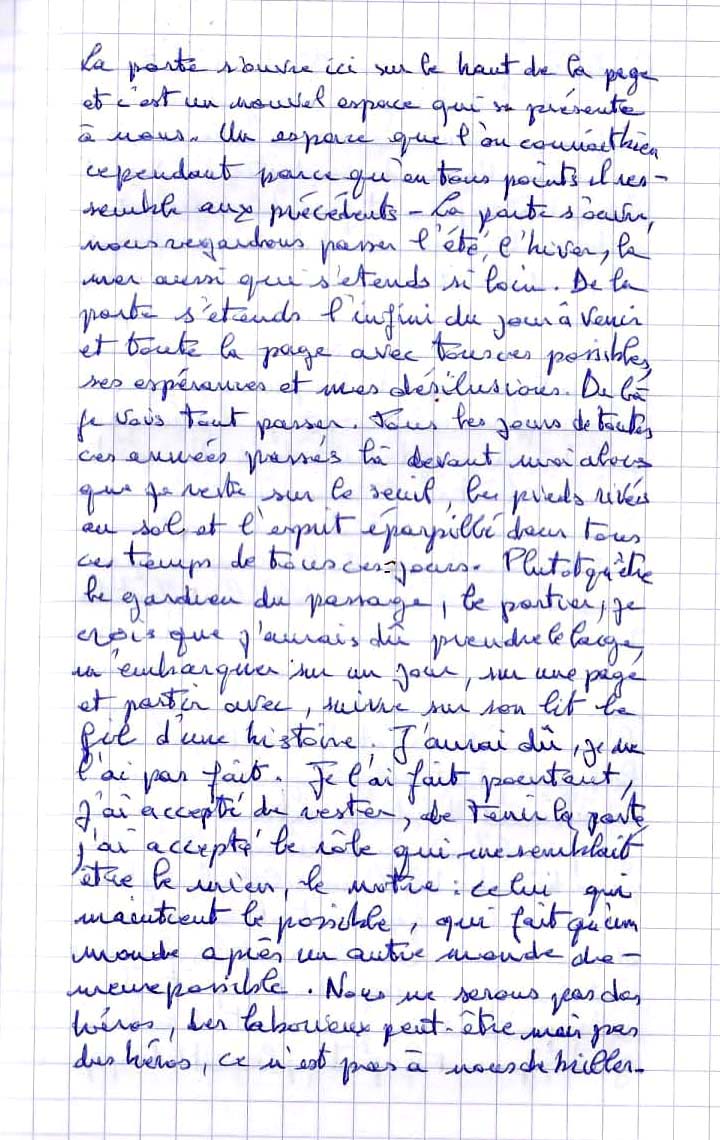 La porte s'ouvre ici sur le haut de la page
et c'est un nouvel espace qui se présente
à nous. Un espace que l'on connaît bien
cependant parce qu'en tous points il res-
semble aux précédents - La porte s'ouvre,
nous regardons passer l'été, l'hiver, la
mer aussi qui s'étends si loin. De la
porte s'étends l'infini du jour à venir
et toute la page avec tous ces possibles,
ses espérances et mes désilusions. De là
je vois tout passer. Tous les jours de toutes
ces années passés là devant moi alors
que je reste sur le seuil, les pieds rivés
au sol et l'esprit éparpillé dans tous
ces temps de tous ces jours. Plutot qu'être
le gardien du passage, le portier, je
crois que j'aurais dû prendre le large,
m'embarquer sur un jour, sur une page
et partir avec, suivre sur son lit le
fil d'une histoire. J'aurai dû, je ne
l'ai pas fait. Je l'ai fait pourtant,
j'ai accepté de rester, de tenir la porte
j'ai accepté le rôle qui me semblait
être le mien, le notre : celui qui
maintient le possible, qui fait qu'un
monde après un autre monde de-
meure possible. Nous ne serons pas des
héros, des laborieux peut-être mais pas
des héros, ce n'est pas à nous de briller.